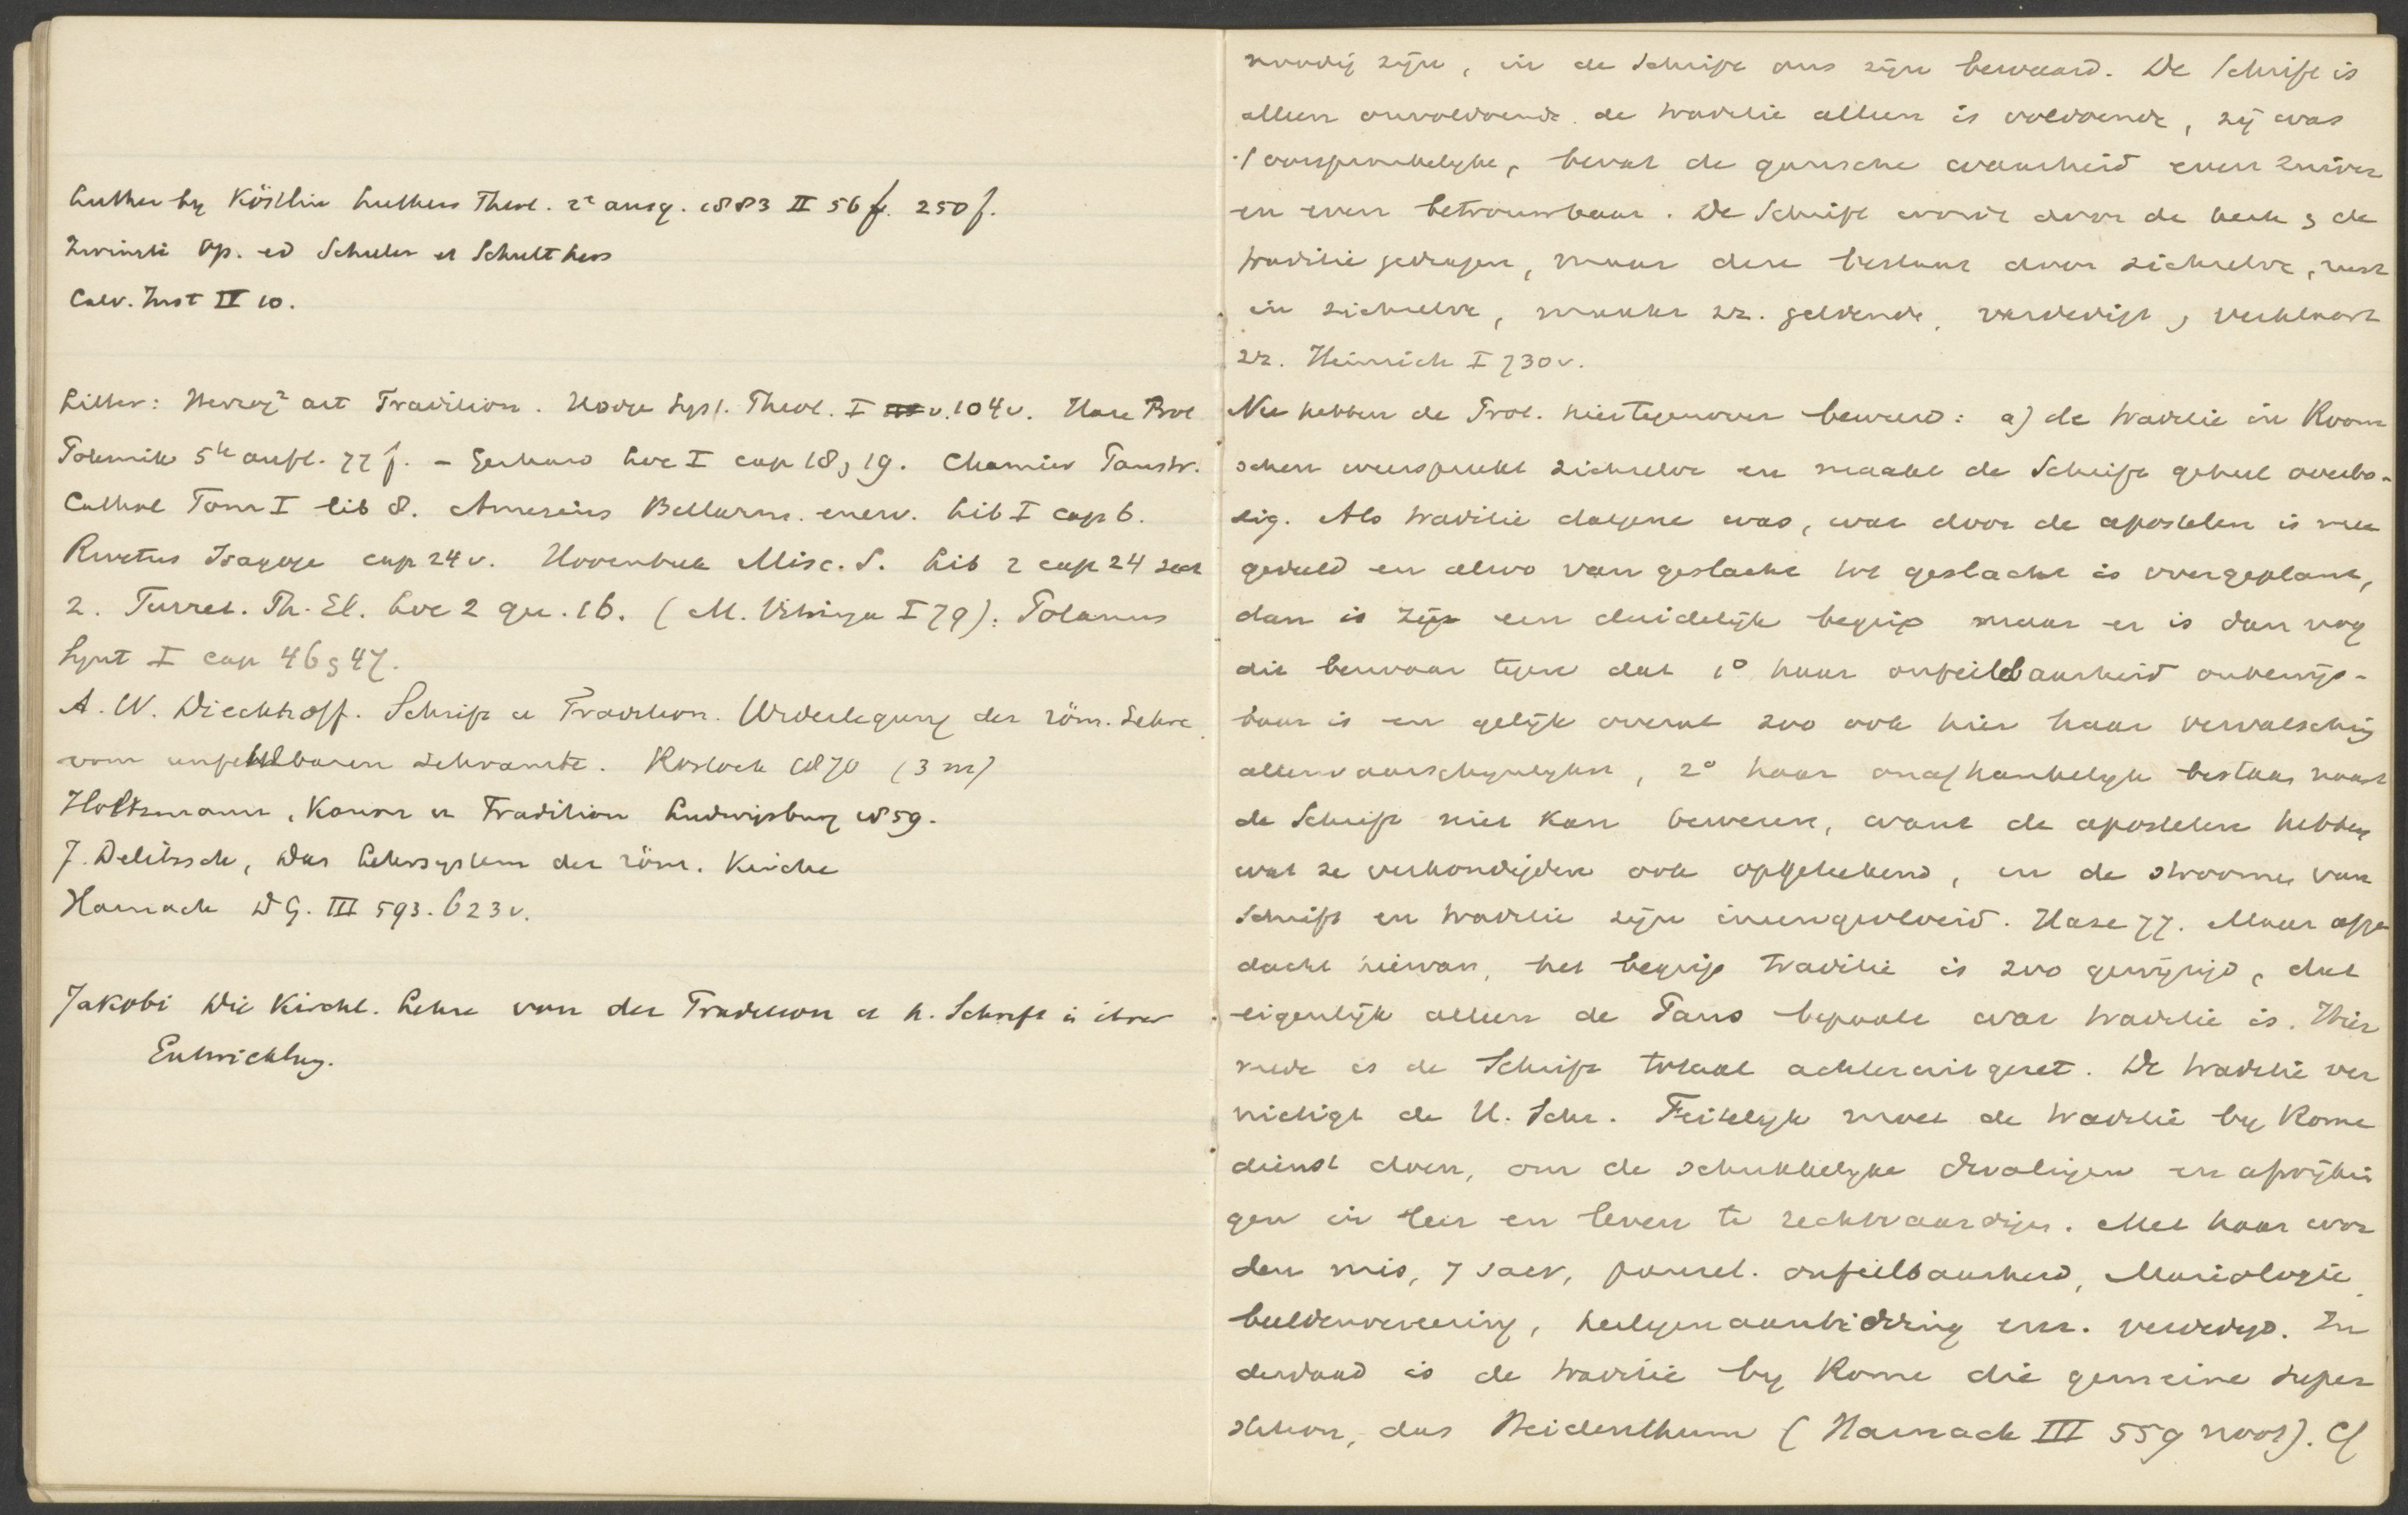 Luther by Köstlin Luthers Theol. 2e ausg. 1883 II 56 f. 250 f.
Zwingli Op. ed Schuler et Schulthess
Calv. Inst IV 10.
Litter: Herzog² art Tradition. Hodge Syst. Theol. I v. 104 v. Hase Prot
Polemik 5te aufl. 77 f. - Gerhard Loc I cap 18, 19. Chamier Panstr.
Cathol Tom I lib 8. Amesius Bellarm. enerv. Lib I cap 6.
Rivetus Isagoge cap 24 v. Hoornbeek Misc. S. Lib 2 cap 24 sect
2. Turret. Th. El. Loc 2 qu. 16. (M. Vitringa I 79). Polanus
Synt I cap 46, 47.
A. W. Dieckhoff. Schrift u Tradition. Widerlegung der röm. Lehre
vom unfehlbaren Lehramte. Rostock 1870 (3 m)
Holtzmann, Kanon u Tradition Ludwigsburg 1859.
J. Delitzsch, Das Lehrsystem der röm. Kirche
Harnack D G. III 593. 623 v.
Jakobi Die Kirchl. Lehre von der Tradition u h. Schrift in ihrer
Entwicklung.
noodig zijn, in de Schrift ons zijn bewaard. De Schrift is
alleen onvoldoende. de traditie alleen is voldoende, zij was
't oorspronkelyke, bevat de gansche waarheid even zuiver
en even betrouwbaar. De Schrift wordt door de kerk & de
traditie gedragen, maar deze bestaat door zichzelve, rust
in zichzelve, maakt zz. geldende, verdedigt & verklaart
zz. Heinrich I 730 v.
Nu hebben de Prot. hiertegenover beweerd: a) de traditie in Room
schen weerspreekt zichzelve en maakt de Schrift geheel overbo-
dig. Als traditie datgene was, wat door de apostelen is mee
gedeeld en alzoo van geslacht tot geslacht is overgeplant,
dan is zij een duidelijk begrip maar er is dan nog
dit bezwaar tegen dat 1° haar onfeilbaarheid onbewijs-
baar is en gelijk overal zoo ook hier haar vervalsching
allerwaarschynlykst, 2° haar onafhankelyk bestaan naast
de Schrift niet kan beweren, want de apostelen hebben
wat ze verkondigden ook opgeteekend, en de stroomen van
Schrift en traditie zijn ineengevloeid. Hase 77. Maar afge
dacht hiervan, het begrip traditie is zoo gewijzigd, dat
eigenlijk alleen de Paus bepaalt wat traditie is. Hier
mede is de Schrift totaal achteruit gezet. De traditie ver
nietigt de H. Schr. Feitelyk moet de traditie by Rome
dienst doen, om de schrikkelyke dwalingen en afwijkin
gen in leer en leven te rechtvaardigen. Met haar wor
den mis, 7 sacr, pausel. onfeilbaarheid, Mariologie,
beeldenvereering, heiligenaanbidding enz. verdedigd. In
derdaad is de traditie by Rome die gemeine super
stition, das Heidenthum (Harnack III 559 noot). Cf